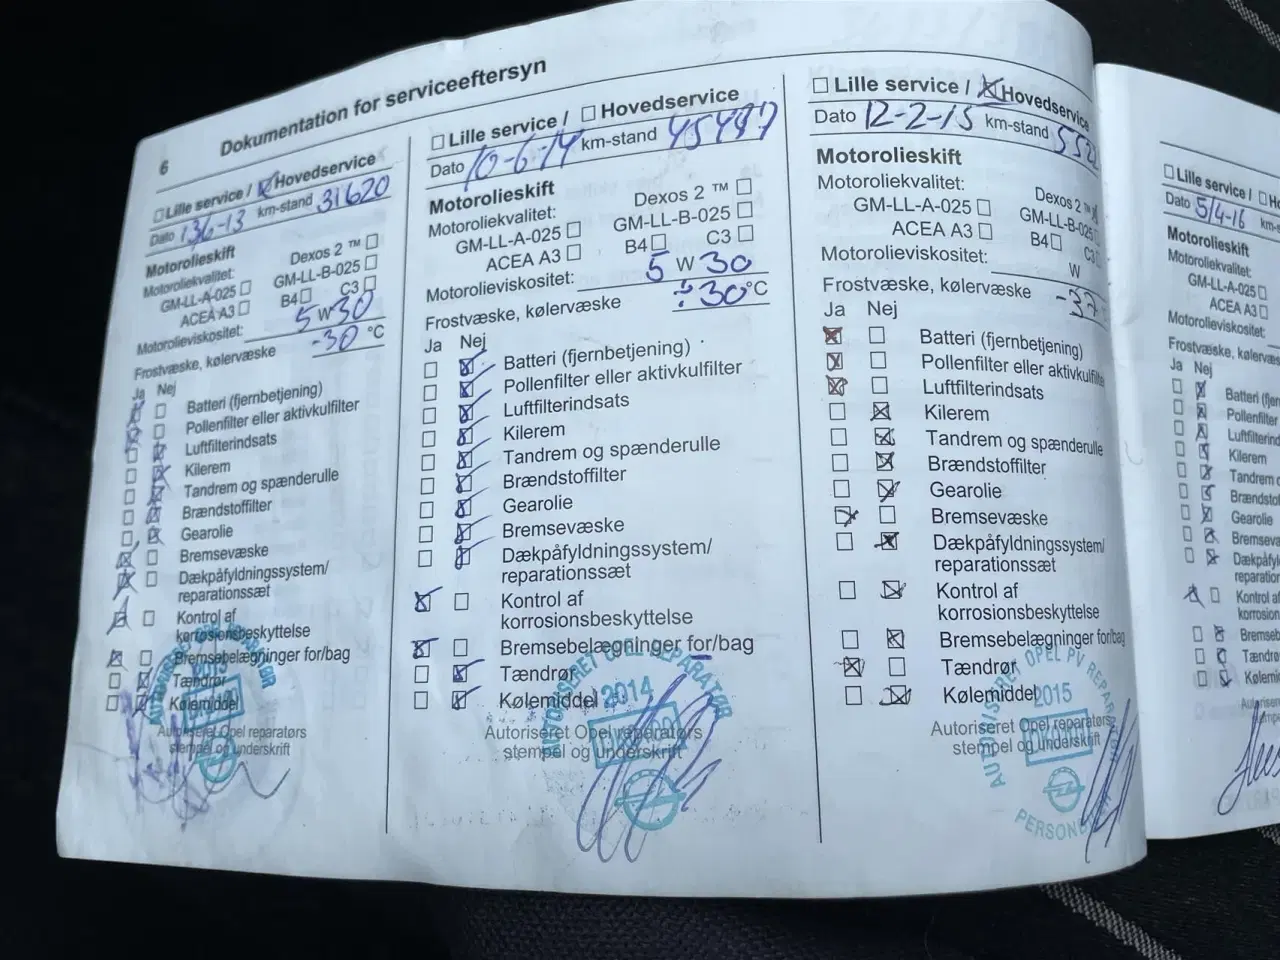 6 Dokumentation for serviceeftersyn
Lille service / Hovedservice
Dato 13-6-13 km-stand 31620
Motorolieskift
Motoroliekvalitet: Dexos 2 ™
GM-LL-A-025 GM-LL-B-025
ACEA A3 B4 C3
Motorolieviskositet: 5 W 30
Frostvæske, kølervæske -30 °C
Ja Nej
Batteri (fjernbetjening)
Pollenfilter eller aktivkulfilter
Luftfilterindsats
Kilerem
Tandrem og spænderulle
Brændstoffilter
Gearolie
Bremsevæske
Dækpåfyldningssystem/
reparationssæt
Kontrol af
korrosionsbeskyttelse
Bremsebelægninger for/bag
Tændrør
Kølemiddel
Autoriseret Opel reparatørs
stempel og underskrift
Lille service / Hovedservice
Dato 10-6-14 km-stand 45497
Motorolieskift
Motoroliekvalitet: Dexos 2 ™
GM-LL-A-025 GM-LL-B-025
ACEA A3 B4 C3
Motorolieviskositet: 5 W 30
Frostvæske, kølervæske ÷30 °C
Ja Nej
Batteri (fjernbetjening)
Pollenfilter eller aktivkulfilter
Luftfilterindsats
Kilerem
Tandrem og spænderulle
Brændstoffilter
Gearolie
Bremsevæske
Dækpåfyldningssystem/
reparationssæt
Kontrol af
korrosionsbeskyttelse
Bremsebelægninger for/bag
Tændrør
Kølemiddel
2014
Autoriseret Opel reparatørs
stempel og underskrift
Lille service / Hovedservice
Dato 12-2-15 km-stand
Motorolieskift
Motoroliekvalitet: Dexos 2 ™
GM-LL-A-025 GM-LL-B-025
ACEA A3 B4 C3
Motorolieviskositet: W
Frostvæske, kølervæske -37
Ja Nej
Batteri (fjernbetjening)
Pollenfilter eller aktivkulfilte
Luftfilterindsats
Kilerem
Tandrem og spænderulle
Brændstoffilter
Gearolie
Bremsevæske
Dækpåfyldningssystem/
reparationssæt
Kontrol af
korrosionsbeskyttelse
Bremsebelægninger for/bag
Tændrør
Kølemiddel
2015
Autoriseret Opel reparatørs
stempel og underskrift
Lille service / Ho
Dato 5/4-16 km-s
Motorolieskift
Motoroliekvalitet:
GM-LL-A-025
ACEA A3
Motorolieviskositet:
Frostvæske, kølervæs
Ja Nej
Batteri (fjern
Pollenfilter e
Luftfilterind
Kilerem
Tandrem o
Brændstof
Gearolie
Bremsevæ
Dækpåfyld
reparation
Kontrol af
korrosion
Bremseb
Tændrø
Kølemi